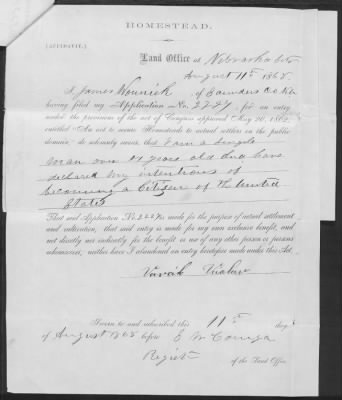 HOMESTEAD.
(AFFIDAVIT.)
Land Office at Nebraska City
August 11th 1868.
I, James of Saunders Co Neb
having filed my Application No. 2227, for an entry
under the provisions of the act of Congress approved May 20, 1862,
entitled "An act to secure Homesteads to actual settlers on the public
domain," do solemnly swear, that I am a single
man over 21 years old and have
declared my intentions of
becoming a Citizen of the United
States
That said Application No. 2227 is made for the purpose of actual settlement
and cultivation, that said entry is made for my own exclusive benefit, and
not directly nor indirectly for the benefit or use of any other person or persons
whomsoever, neither have I abandoned an entry heretofore made under this Act.
Sworn to and subscribed this 11th day
of August 1868 before E. W.
Register
of the Land Office.